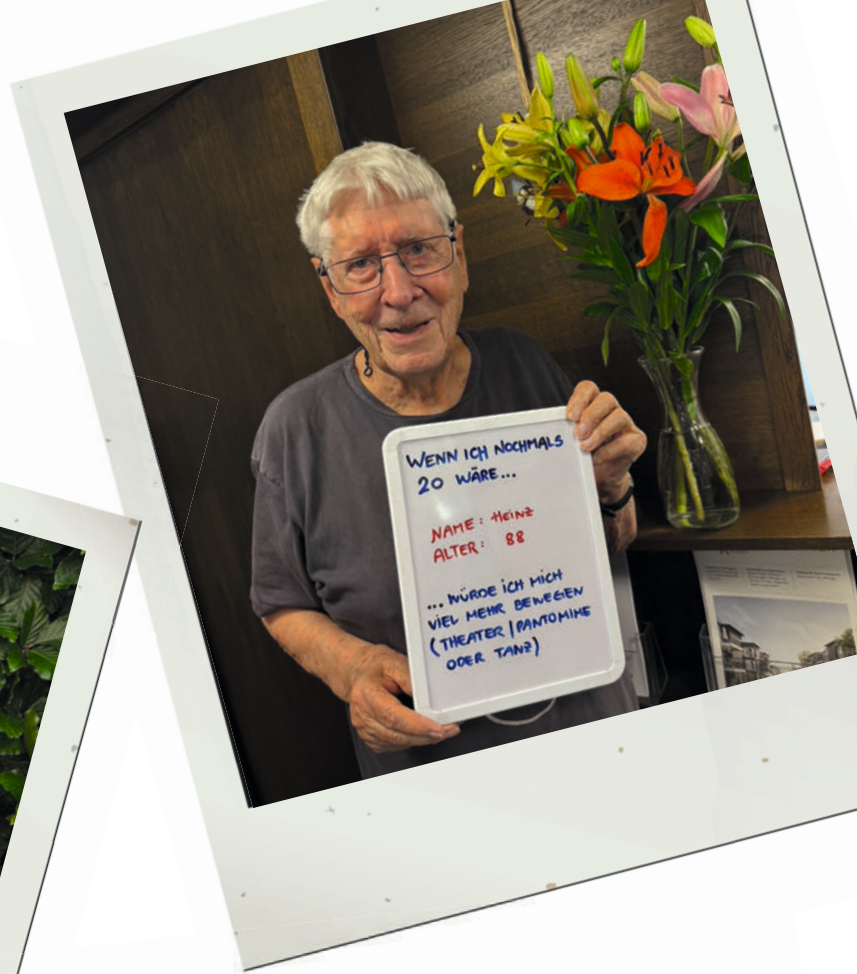 WENN ICH NOCHMALS
20 WÄRE...
NAME: HEINZ
ALTER: 88
... WÜRDE ICH MICH
VIEL MEHR BEWEGEN
(THEATER/PANTOMIME
ODER TANZ)